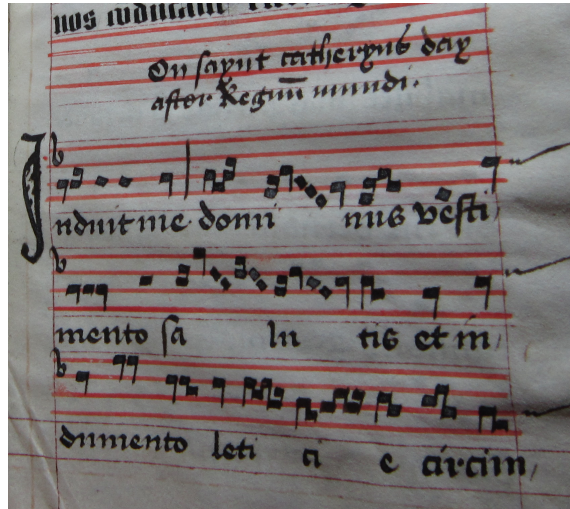 nos
On saynt catheryns day
after Regnum mundi.
Induit me domi nus vesti
mento sa lu tis et in
dumento leti ci e circum